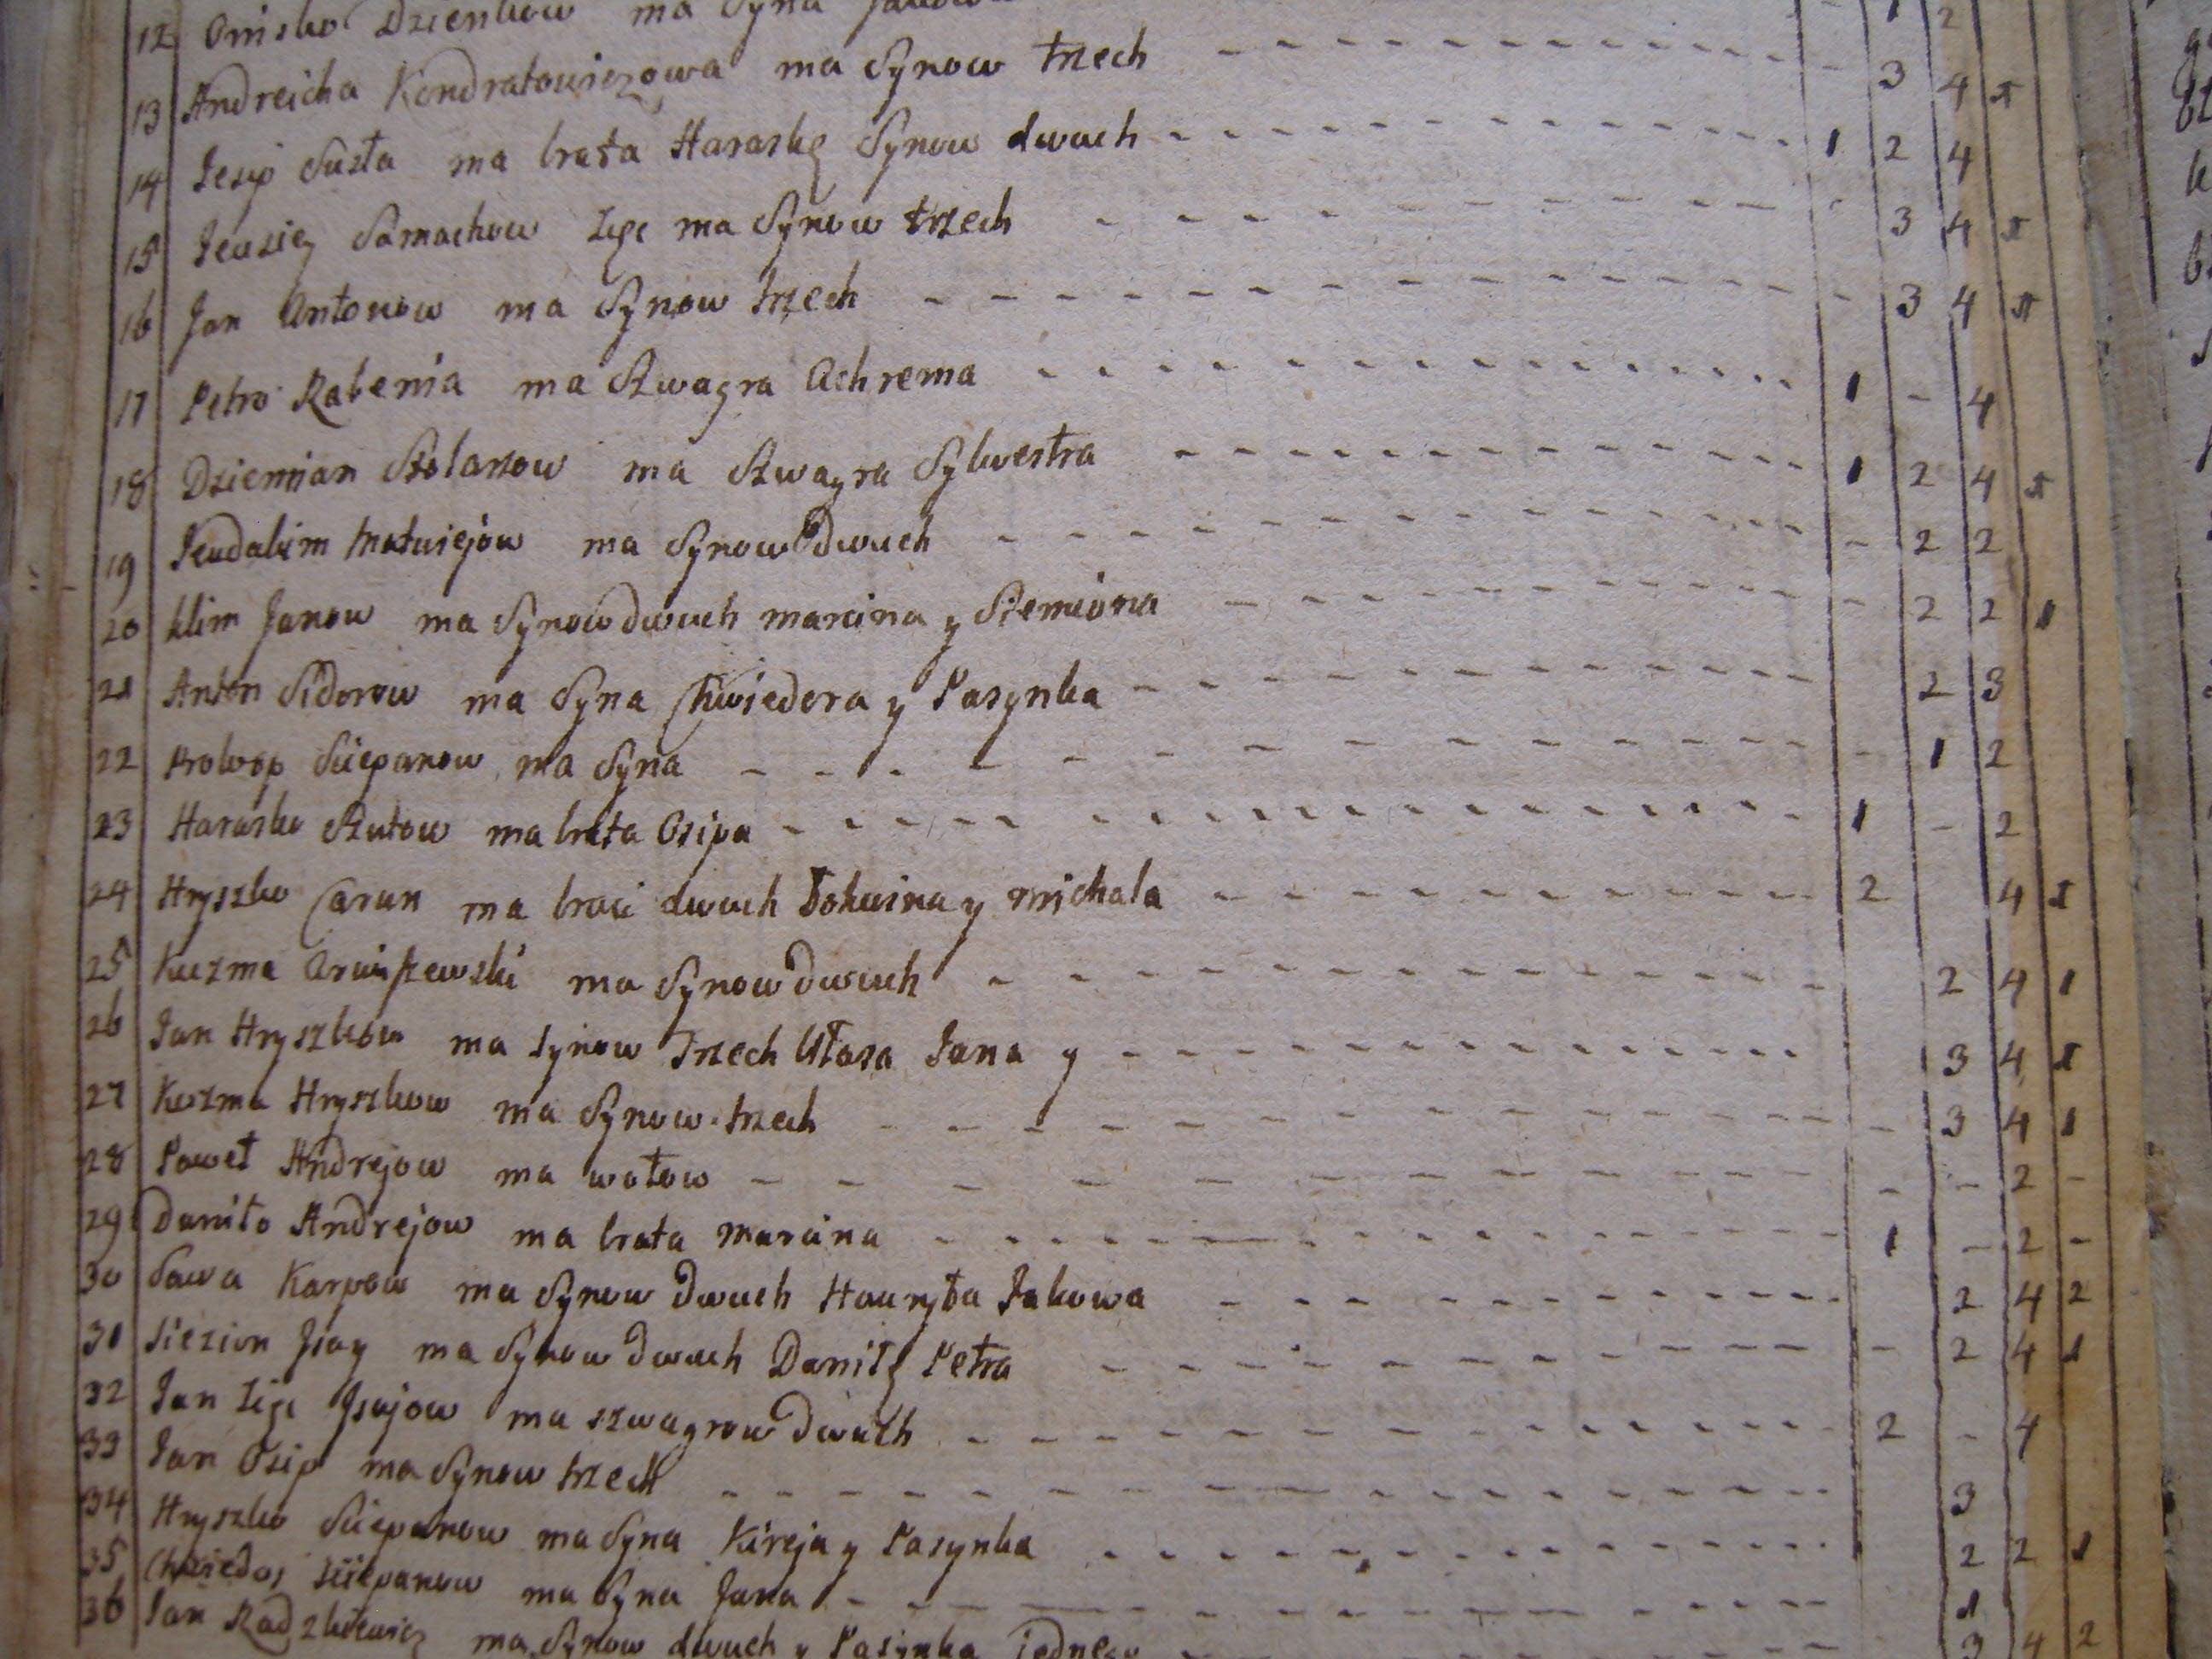 12 Onisko Dzienkow ma Syna - 1 2
13 Andreicha Kondratowiczowa ma Synow trzech - 3 4 1
14 Jesip Suszta ma brata Haraskę Synow dwuch 1 2 4
15 Jewsiey Samachow Zięć ma Synow trzech - 3 4 1
16 Jan Antonow ma Synow trzech - 3 4 1
17 Petro Rabenia ma Szwagra Achrema 1 - 4
18 Dziemian Stolarzow ma Szwagra Sylwestra 1 2 4 1
19 Jewdakim Matwiejow ma Synow dwuch - 2 2
20 Klim Janow ma Synow dwuch Marcina y Siemiona - 2 2 1
21 Anton Sidorow ma Syna Chwiedora y Pasynka 2 3
22 Prokop Sciepanow ma Syna - 1 2
23 Harasko Szutow ma brata Osipa 1 - 2
24 Hryszko Carun ma braci dwuch y Michala 2 4 1
25 Kuzma ma Synow dwuch 2 4 1
26 Jan Hryszkow ma Synow Trzech Ułasa Jana y 3 4 1
27 Kuzma Hryszkow ma Synow trzech - 3 4 1
28 Paweł Andrejow ma wołow - - 2 -
29 Daniło Andrejow ma brata Marcina 1 - 2 -
30 Sawa Karpow ma Synow dwuch Hauryła Jakowa 2 4 2
31 Jsay ma Synow dwuch Daniłę Petra - 2 4 1
32 Jan Zięć Jsajow ma szwagrow dwuch 2 - 4
33 Jan Osip ma Synow trzech 3
34 Hryszko Sciepanow ma Syna Kireja y Pasynka 2 2 1
35 Chwiedor Sciepanow ma Syna Jana 1
36 Jan ma Synow dwuch y Pasynka jednego 3 4 2